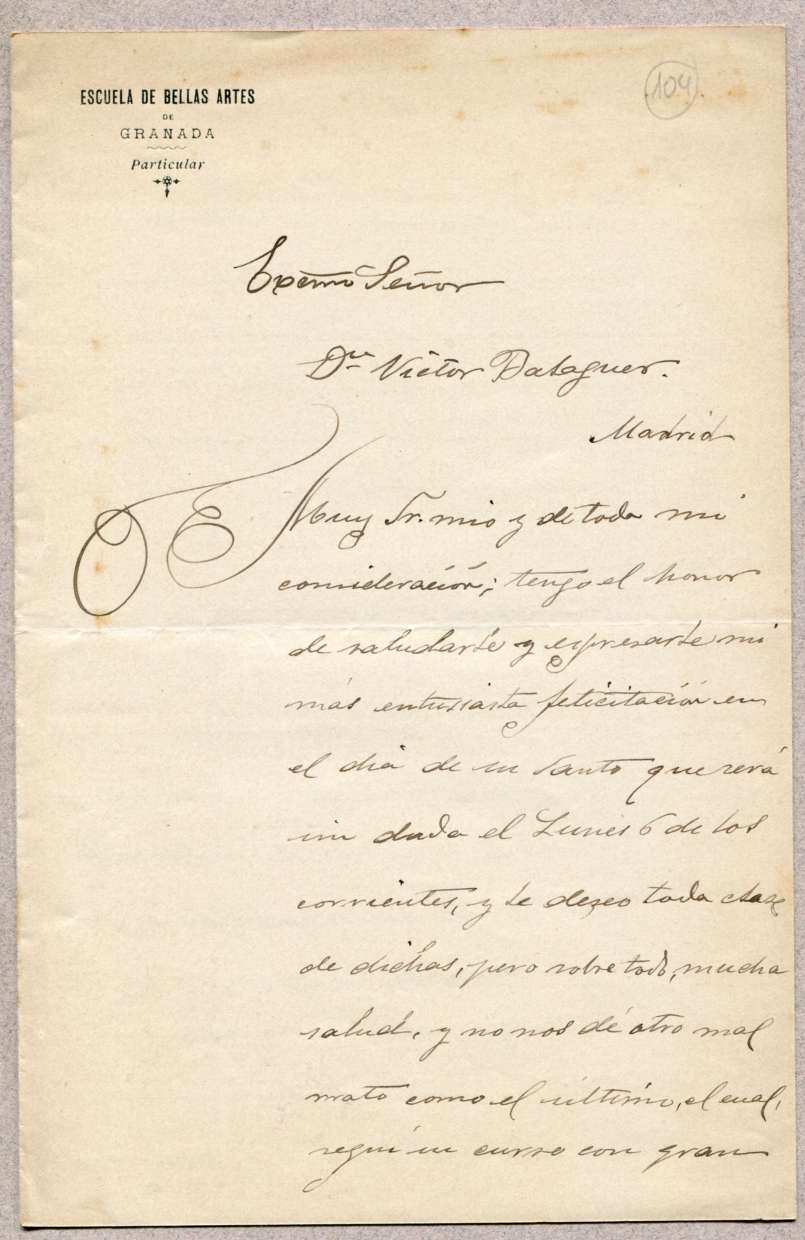 ESCUELA DE BELLAS ARTES
DE
GRANADA
Particular
104
Excmo Señor
Dn Víctor Balaguer.
Madrid
Muy Sr. mio y de toda mi
consideración; tengo el honor
de saludarle y espresarle mi
más entusiasta felicitación en
el dia de su Santo que será
sin duda el Lunes 6 de los
corrientes, y le deseo toda clase
de dichas, pero sobre todo, mucha
salud, y no nos dé otro mal
rato como el último, el cual,
seguí su curso con gran